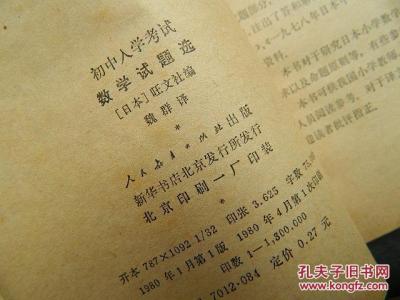 初中入学考试
数学试题选
[日本]旺文社编
魏群译
*
人民教育出版社出版
新华书店北京发行所发行
北京印刷一厂印装
*
开本 787×1092 1/32 印张 3.625 字数 75,
1980年1月第1版 1980年4月第1次印刷
印数 1—1,300,000
7012·084 定价 0.27元
注出了答和
《一九七八年日本中
本书对于研究日本小学数
末以及命题原则等，有些参
本书可供我国小学教师
人员阅读参考。对于译文
望读者批评指正。
孔夫子旧书网